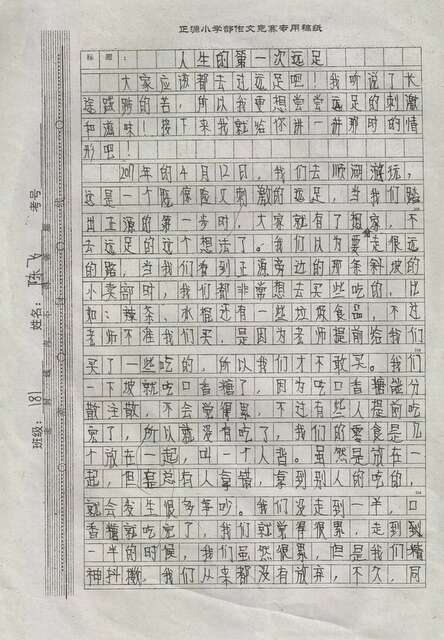 正源小学部作文竞赛专用稿纸
标题：人生的第一次远足
大家应该都去过远足吧！我听说了长
途跋涉的苦，所以我更想尝尝远足的刺激
和滋味！接下来我就给你讲一讲那时的情
形吧！
2017年的4月12日，我们去顺湖游玩，
这是一个既保险又刺激的远足，当我们踏
出正源的第一步时，大家就有了想家，不
去远足的这个想法了。我们以为要走很远
的路，当我们看到正源旁边的那条斜坡的
小卖部时，我们都非常想去买些吃的，比
如：辣条、冰棍还有一些垃圾食品，不过
老师不准我们买，是因为老师提前给我们
买了一些吃的，所以我们才不敢买。我们
一下坡就吃口香糖了，因为吃口香糖能分
散注散，不会觉得累，不过有些人提前吃
完了，所以就没有吃了，我们的零食是几
个放在一起，叫一个人背。虽然是放在一
起，但总有人拿错，拿到别人的吃的，
就会发生很多争吵。我们没走到一半，口
香糖就吃完了，我们就觉得很累，走到
一半的时候，我们虽然很累，但是我们精
神抖擞，我们从来都没有放弃，不久，同
班级：181
姓名：陈飞
考号